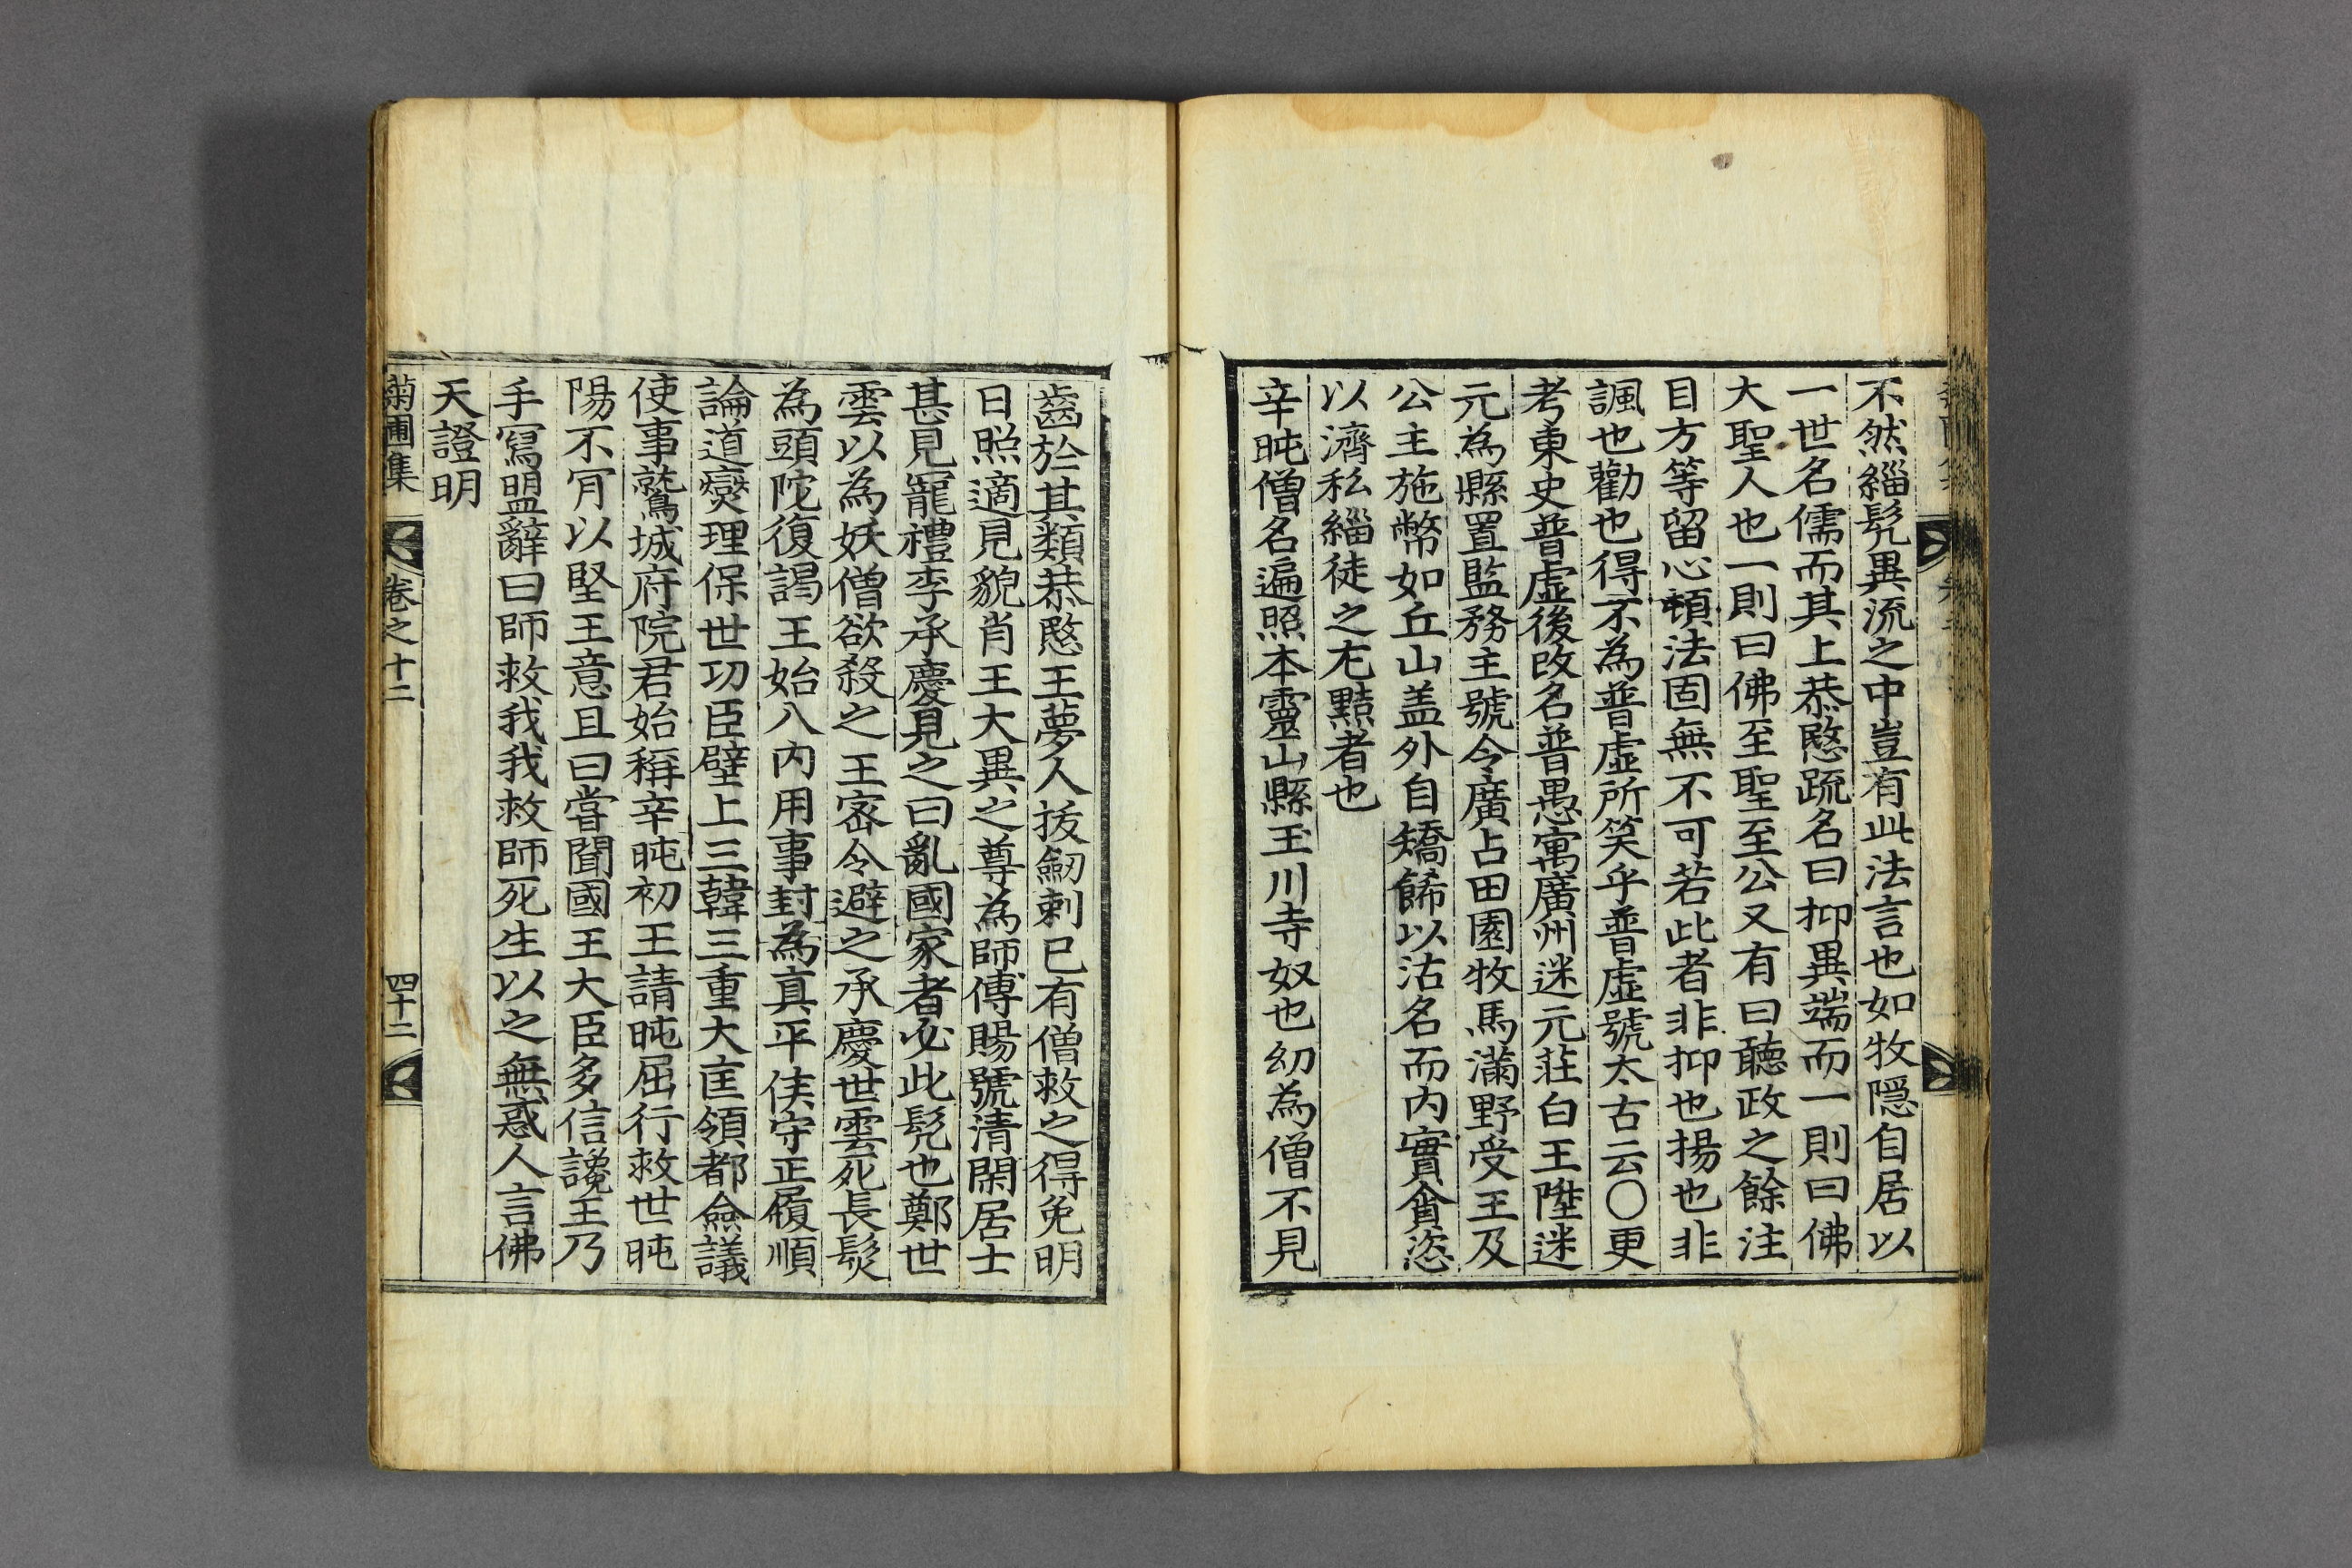 不然緇髡異流之中豈有此法言也如牧隱自居以
一世名儒而其上恭愍疏名曰抑異端而一則曰佛
大聖人也一則曰佛至聖至公又有曰聽政之餘注
目方等留心頓法固無不可若此者非抑也揚也非
諷也勸也得不為普虛所笑乎普虛號太古云○更
考東史普虛後改名普愚寓廣州迷元莊白王陞迷
元為縣置監務主號令廣占田園牧馬滿野受王及
公主施幣如丘山盖外自矯餙以沽名而內實貪恣
以濟私緇徒之尤黠者也
辛旽僧名遍照本靈山縣玉川寺奴也幼為僧不見
齒於其類恭愍王夢人拔劒刺已有僧救之得免明
日照適見貌肖王大異之尊為師傅賜號清閑居士
甚見寵禮李承慶見之曰亂國家者必此髡也鄭世
雲以為妖僧欲殺之王密令避之承慶世雲死長髮
為頭陀復謁王始入內用事封為真平侯守正履順
論道燮理保世功臣壁上三韓三重大匡領都僉議
使事鷲城府院君始稱辛旽初王請旽屈行救世旽
陽不肎以堅王意且曰嘗聞國王大臣多信讒王乃
手寫盟辭曰師救我我救師死生以之無惑人言佛
天證明
菊圃集 卷之十二 四十二